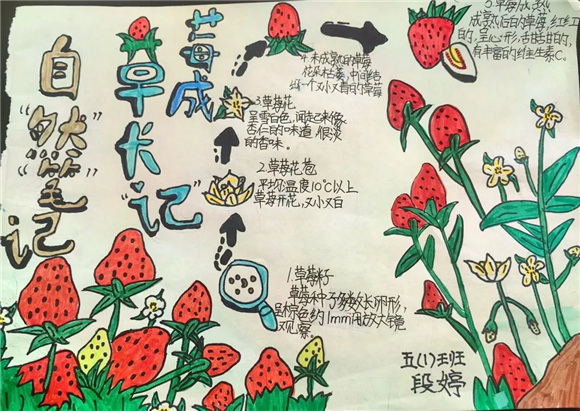 自“然”笔记
草莓成长记
5.草莓成熟
成熟后的草莓,红红
的,呈心形,甜甜的,
有丰富的维生素C。
4.未成熟的草莓
花朵枯萎,中间结
出一个又小又青的草莓
3.草莓花
呈雪白色,闻起来像
杏仁的味道,很淡
的香味。
2.草莓花苞
平均温度10℃以上
草莓开花,又小又白
1.草莓籽
草莓种子多数长卵形,
呈棕色约1mm用放大镜
观察
五(1)班
段婷